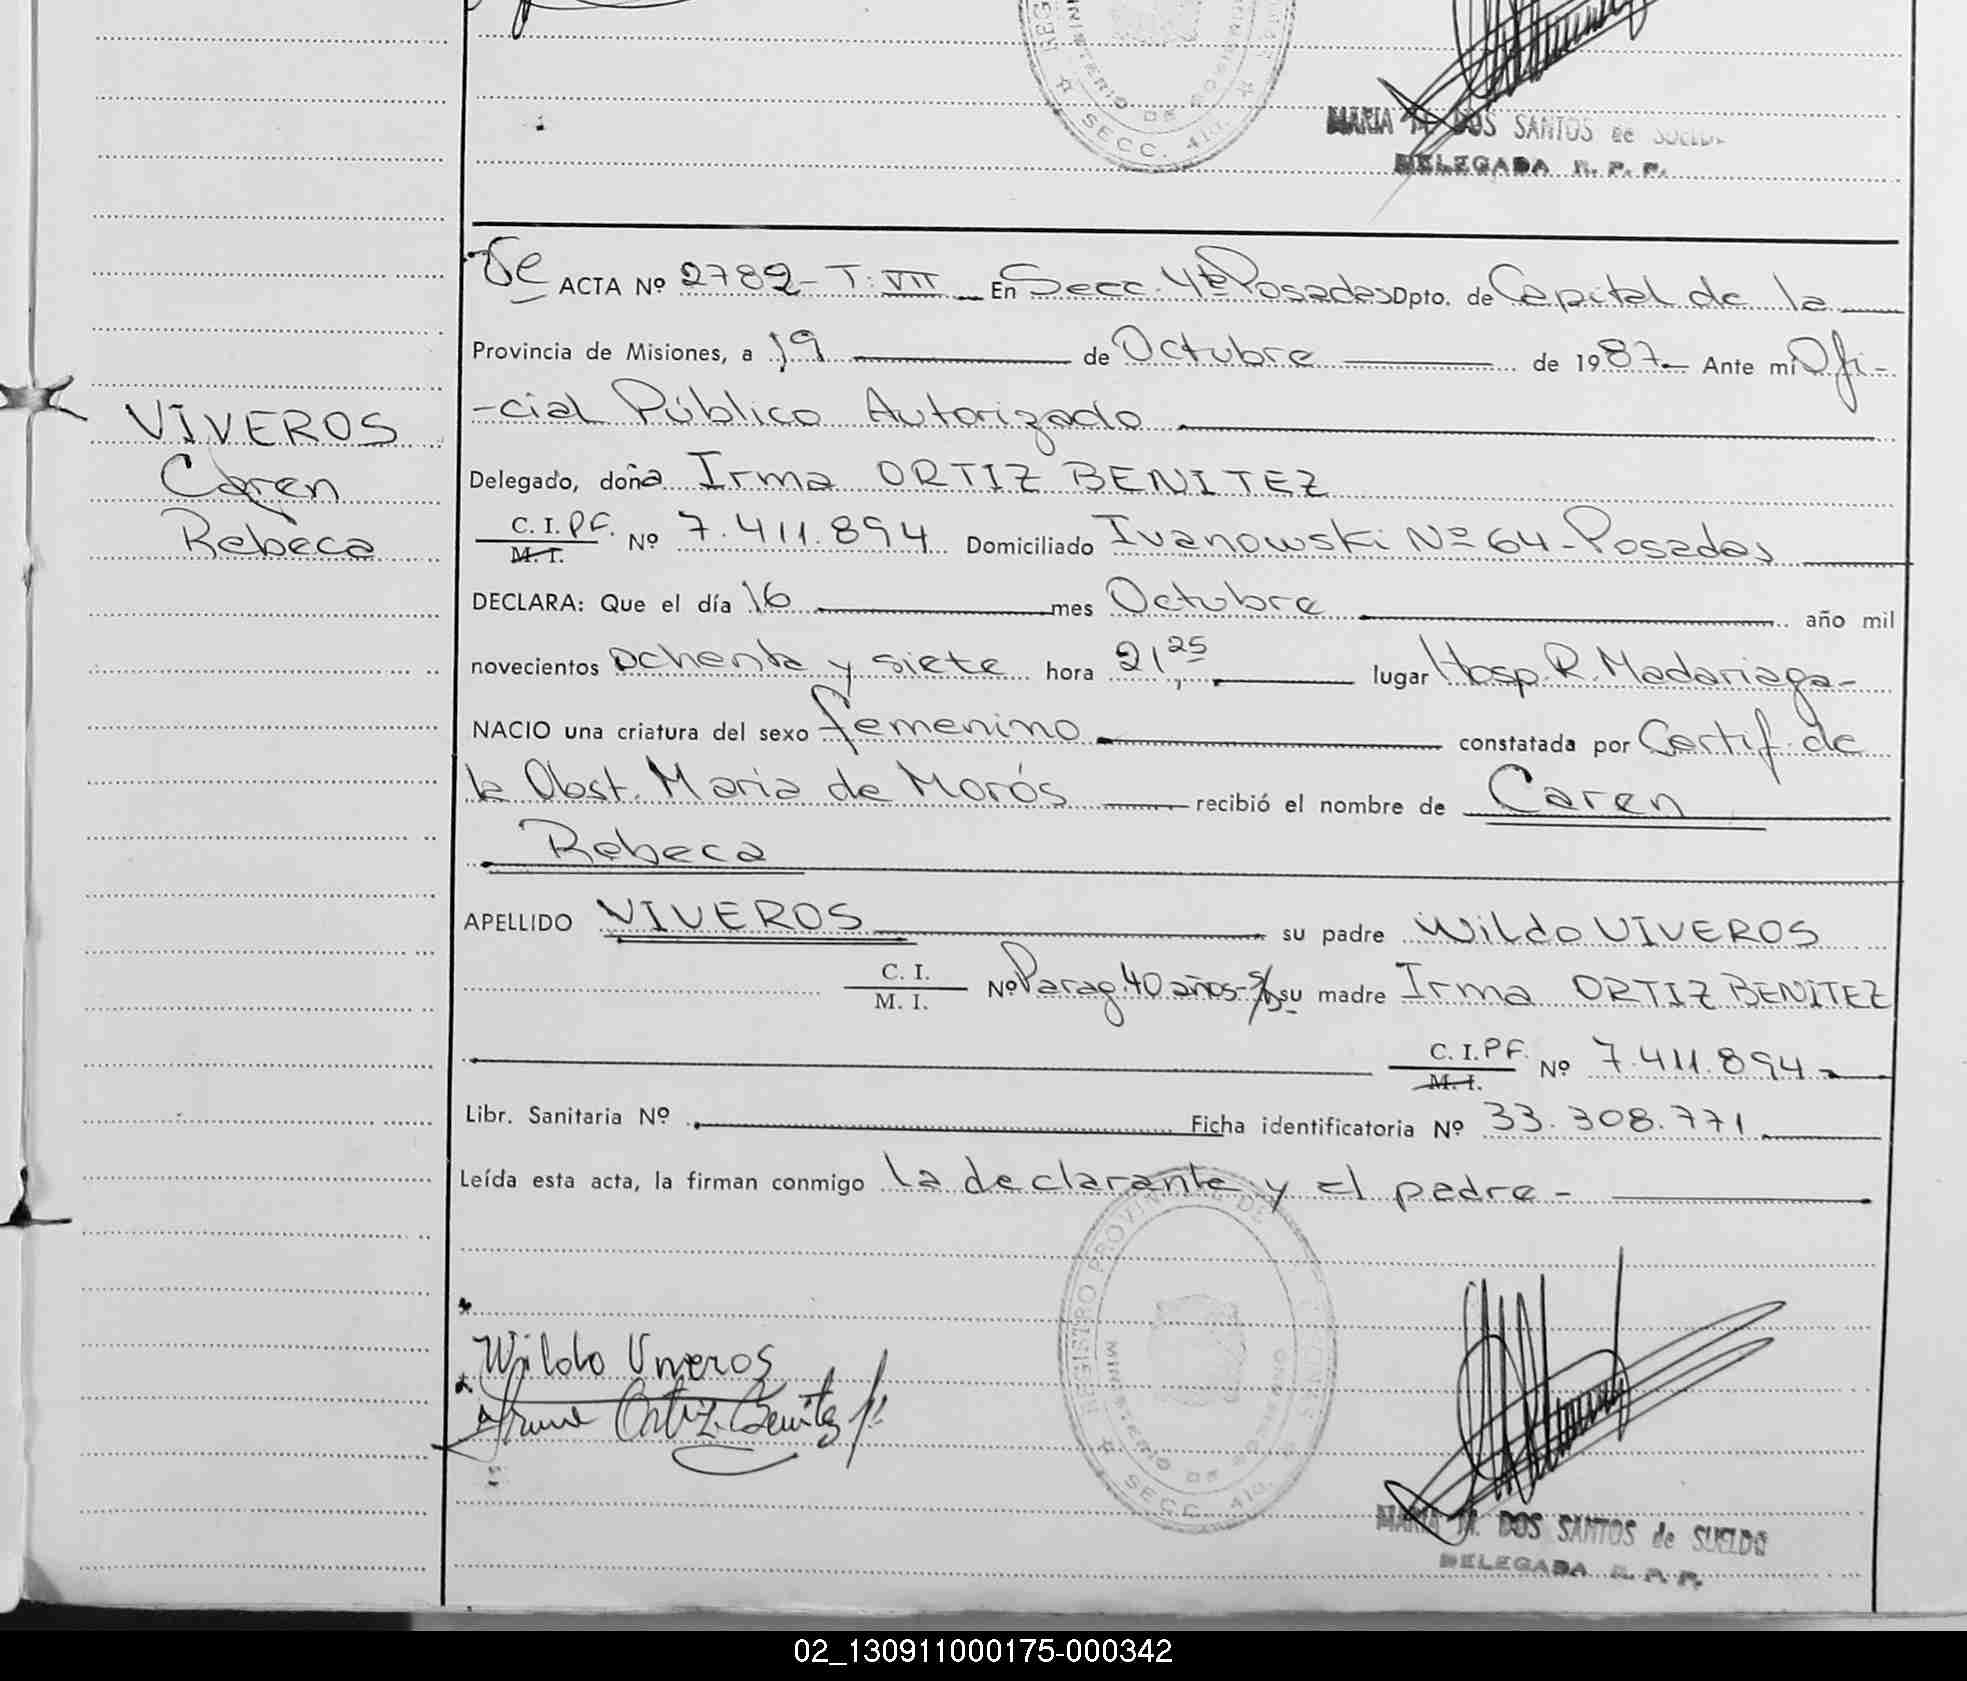 REG
MINISTERIO DE GOBIERNO
SECC. 4ta.
MARIA M. DOS SANTOS de SUELDO
DELEGADA R. P. P.
ACTA Nº 2782- T: VII En Secc. 4ta Posadas Dpto. de Capital de la
Provincia de Misiones, a 19 de Octubre de 1987.- Ante mí Ofi-
-cial Público Autorizado
VIVEROS
Caren
Rebeca
Delegado, doña Irma ORTIZ BENITEZ
C. I. P.F. M. I. Nº 7.411.894 Domiciliado Ivanowski Nº 64-Posadas
DECLARA: Que el día 16 mes Octubre año mil
novecientos ochenta y siete hora 21,25 lugar Hosp. R. Madariaga-
NACIO una criatura del sexo femenino constatada por Certif. de
la Obst. Maria de Morós recibió el nombre de Caren
Rebeca
APELLIDO VIVEROS su padre Wildo VIVEROS
C. I. M. I. Nº Parag 40 años- su madre Irma ORTIZ BENITEZ
C. I. P.F. M. I. Nº 7.411.894-
Libr. Sanitaria Nº Ficha identificatoria Nº 33.308.771
Leída esta acta, la firman conmigo la declarante y el padre-
REGISTRO PROVINCIAL DE
MINISTERIO DE GOBIERNO
SECC. 4ta.
Wildo Viveros
Irma Ortiz Benitez
MARIA M. DOS SANTOS de SUELDO
DELEGADA R. P. P.
02_130911000175-000342